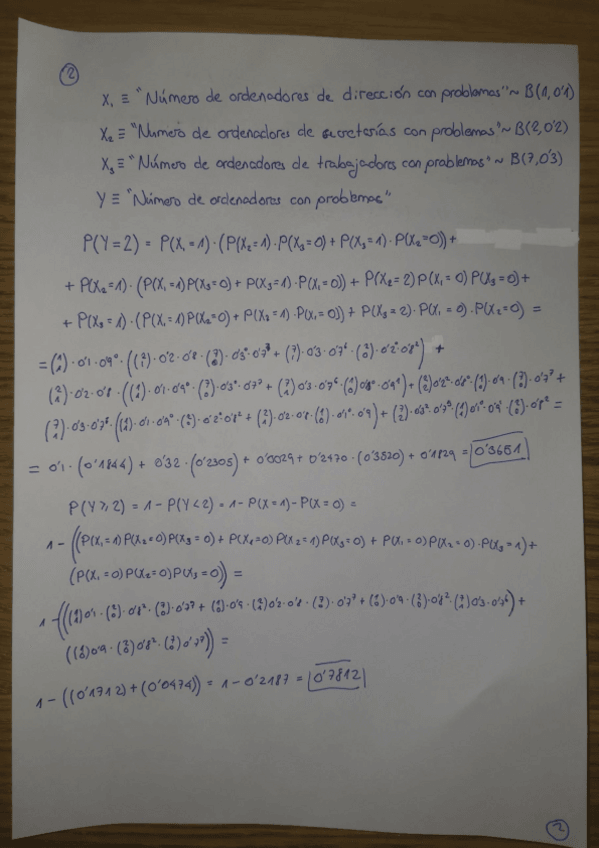 2
X₁ ≡ "Número de ordenadores de dirección con problemas" ~ B(1,0'1)
X₂ ≡ "Numero de ordenadores de secretarías con problemas" ~ B(2,0'2)
X₃ ≡ "Número de ordenadores de trabajadores con problemas" ~ B(7,0'3)
Y ≡ "Número de ordenadores con problemas"
P(Y=2) = P(X₁=1)·(P(X₂=1)·P(X₃=0) + P(X₃=1)·P(X₂=0)) +
+ P(X₂=1)·(P(X₁=1)P(X₃=0) + P(X₃=1)·P(X₁=0)) + P(X₂=2)P(X₁=0)P(X₃=0) +
+ P(X₃=1)·(P(X₁=1)P(X₂=0) + P(X₂=1)·P(X₁=0)) + P(X₃=2)·P(X₁=0)·P(X₂=0) =
= (1 1)·0'1·0'9⁰·((2 1)·0'2·0'8·(7 0)·0'3⁰·0'7⁷ + (7 1)·0'3·0'7⁶·(2 0)·0'2⁰·0'8²) +
(2 1)·0'2·0'8·((1 1)·0'1·0'9⁰·(7 0)·0'3⁰·0'7⁷ + (7 1)0'3·0'7⁶·(1 0)0'1⁰·0'9¹) + (2 2)0'2²·0'8⁰·(1 0)·0'9·(7 0)·0'7⁷ +
(7 1)·0'3·0'7⁶·((1 1)·0'1·0'9⁰·(2 0)·0'2⁰·0'8² + (2 1)·0'2·0'8·(1 0)·0'1⁰·0'9) + (7 2)·0'3²·0'7⁵·(1 0)0'1⁰·0'9¹·(2 0)·0'8² =
= 0'1·(0'1844) + 0'32·(0'2305) + 0'0029 + 0'2470·(0'3520) + 0'1829 = 0'3651
P(Y≥2) = 1 - P(Y<2) = 1 - P(X=1) - P(X=0) =
1 - ((P(X₁=1)P(X₂=0)P(X₃=0) + P(X₁=0)P(X₂=1)P(X₃=0) + P(X₁=0)P(X₂=0)·P(X₃=1)) +
(P(X₁=0)P(X₂=0)P(X₃=0)) =
1 - (((1 1)0'1·(2 0)·0'8²·(7 0)·0'7⁷ + (1 0)·0'9·(2 1)0'2·0'8·(7 0)·0'7⁷ + (1 0)·0'9·(2 0)·0'8²·(7 1)0'3·0'7⁶) +
((1 0)0'9·(2 0)0'8²·(7 0)0'7⁷)) =
1 - ((0'1712) + (0'0474)) = 1 - 0'2187 = 0'7812
2